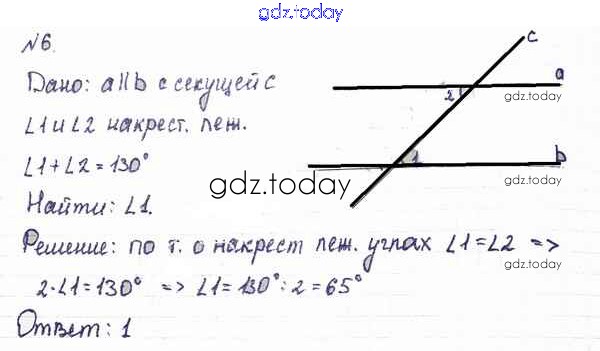 gdz.today
№6.
Дано: a||b с секущей c
∠1 и ∠2 накрест. леж.
∠1+∠2=130°
Найти: ∠1.
Решение: по т. о накрест леж. углах ∠1=∠2 =>
2·∠1=130° => ∠1=130°:2=65°
Ответ: 1
c
a
2
gdz.today
1
b
gdz.today
gdz.today
gdz.today